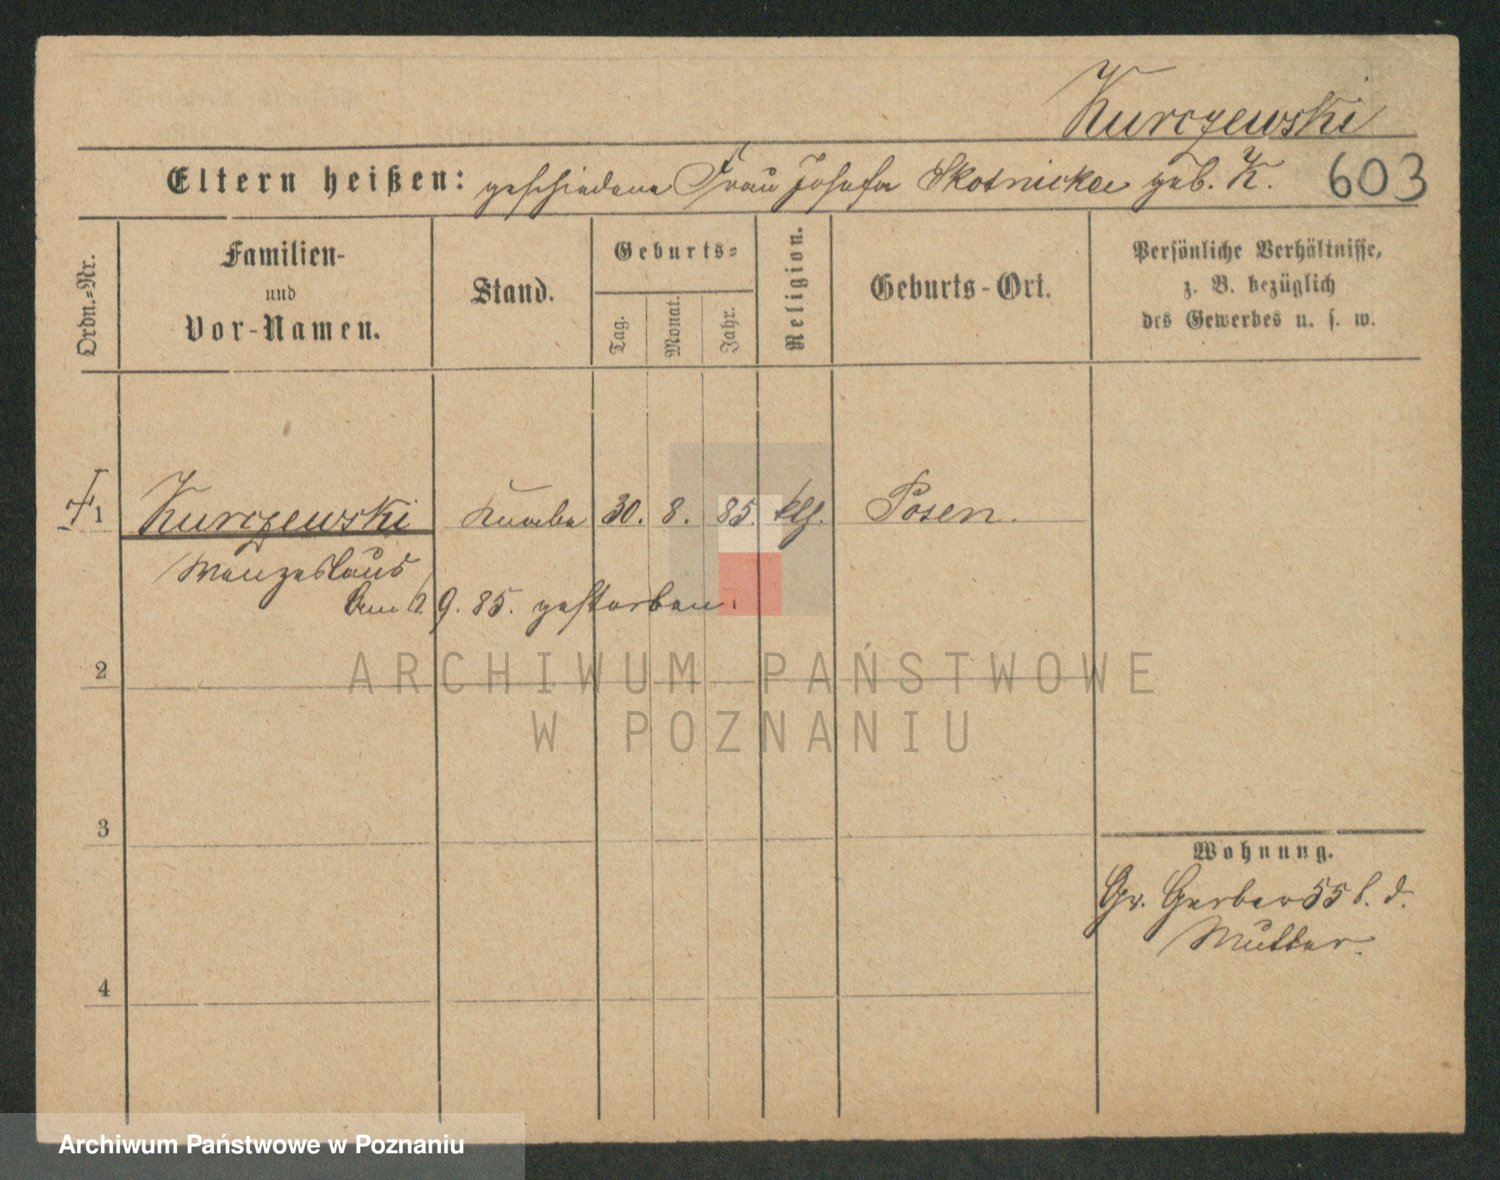 Kurczewski
Eltern heißen: geschiedene Frau Josefa Skotnicka geb. K. 603
Ordn.-Nr.
Familien-
und
Vor-Namen.
Stand.
Geburts-
Tag.
Monat.
Jahr.
Religion.
Geburts-Ort.
Persönliche Verhältnisse,
z. B. bezüglich
des Gewerbes u. s. w.
1 Kurczewski Knabe 30. 8. 85. klh. Posen.
Wenzeslaus
am 9. 85. gestorben.
2
ARCHIWUM PAŃSTWOWE
W POZNANIU
3
Wohnung.
Gr. Gerber 55 b. d.
Mutter.
4
Archiwum Państwowe w Poznaniu